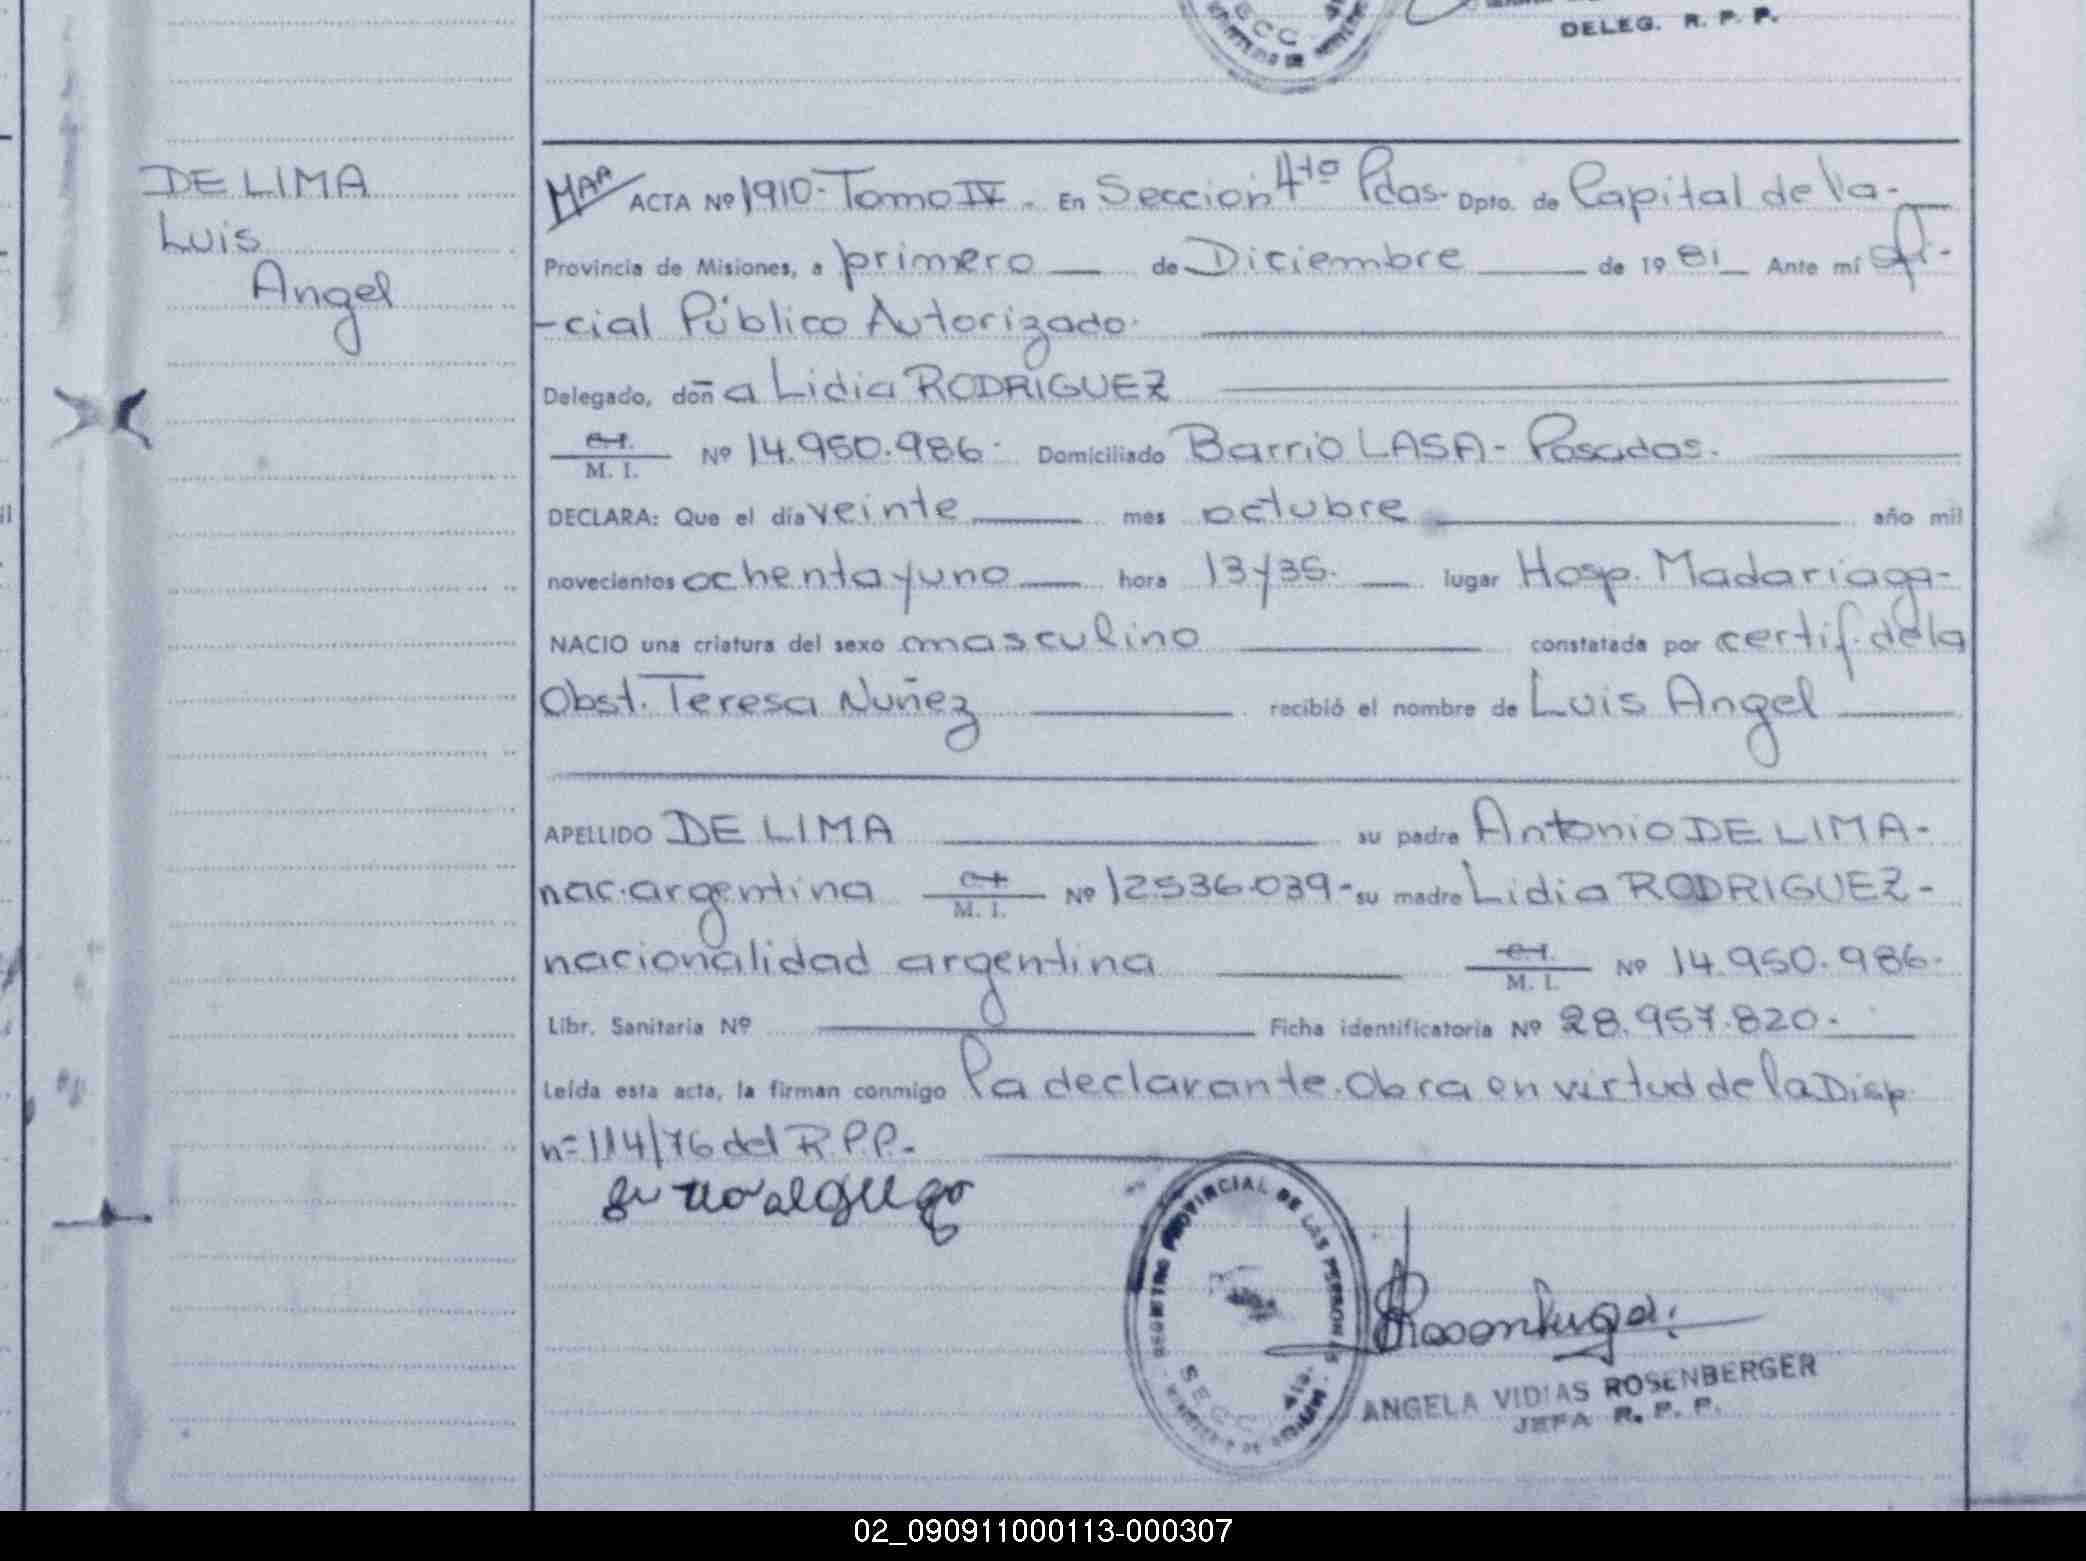 DELEG. R. P. P.
DE LIMA
Luis
Angel
ACTA Nº 1910- Tomo IV. En Sección 4ta Pdas. Dpto. de Capital de la-
Provincia de Misiones, a primero de Diciembre de 19 81 Ante mí Ofi-
-cial Público Autorizado.
Delegado, doña Lidia RODRIGUEZ
M. I. Nº 14.950.986- Domiciliado Barrio LASA- Posadas.
DECLARA: Que el día veinte mes octubre año mil
novecientos ochenta y uno hora 13 y 35. lugar Hosp. Madariaga-
NACIO una criatura del sexo masculino constatada por certif. de la
Obst. Teresa Nuñez recibió el nombre de Luis Angel
APELLIDO DE LIMA su padre Antonio DE LIMA-
nac. argentina M. I. Nº 12.536.039- su madre Lidia RODRIGUEZ-
nacionalidad argentina M. I. Nº 14.950.986-
Libr. Sanitaria Nº Ficha identificatoria Nº 28.957.820-
Leída esta acta, la firman conmigo la declarante. Obra en virtud de la Disp.
n= 114/76 del R.P.P.-
REGISTRO PROVINCIAL DE LAS PERSONAS
SECC. 4ta.
ANGELA VIDIAS ROSENBERGER
JEFA R. P. P.
02_090911000113-000307